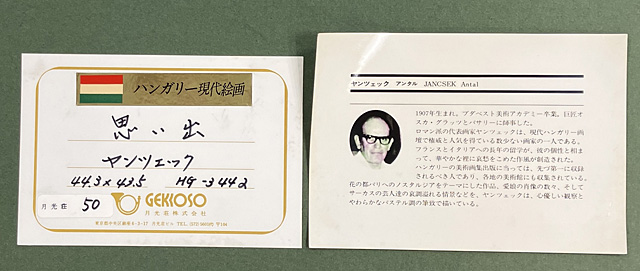 ハンガリー現代絵画
思い出
ヤンツェック
44.3×43.5 HG-3442
月光荘 50 GEKKOSO
月光荘株式会社
ヤンツェック アンタル JANCSEK Antal
1907年生まれ。ブダペスト美術アカデミー卒業。巨匠オ
スカ・グラッツとバサリーに師事した。
ロマン派の代表画家ヤンツェックは、現代ハンガリー画
壇で権威と人気を得ている数少ない画家の一人である。
フランスとイタリアへの長年の留学が、彼の個性と相ま
って、華やかな裡に哀愁をこめた作風が創造された。
ハンガリーの美術画集出版に当っては、先づ第一に収録
されるべき人であり、各地の美術館にも収集されている。
花の都パリへのノスタルジアをテーマにした作品、愛娘の肖像の数々、そして
サーカスの芸人達の哀調溢れる情景などを、ヤンツェックは、心優しい観察と
やわらかなパステル調の筆致で描いている。